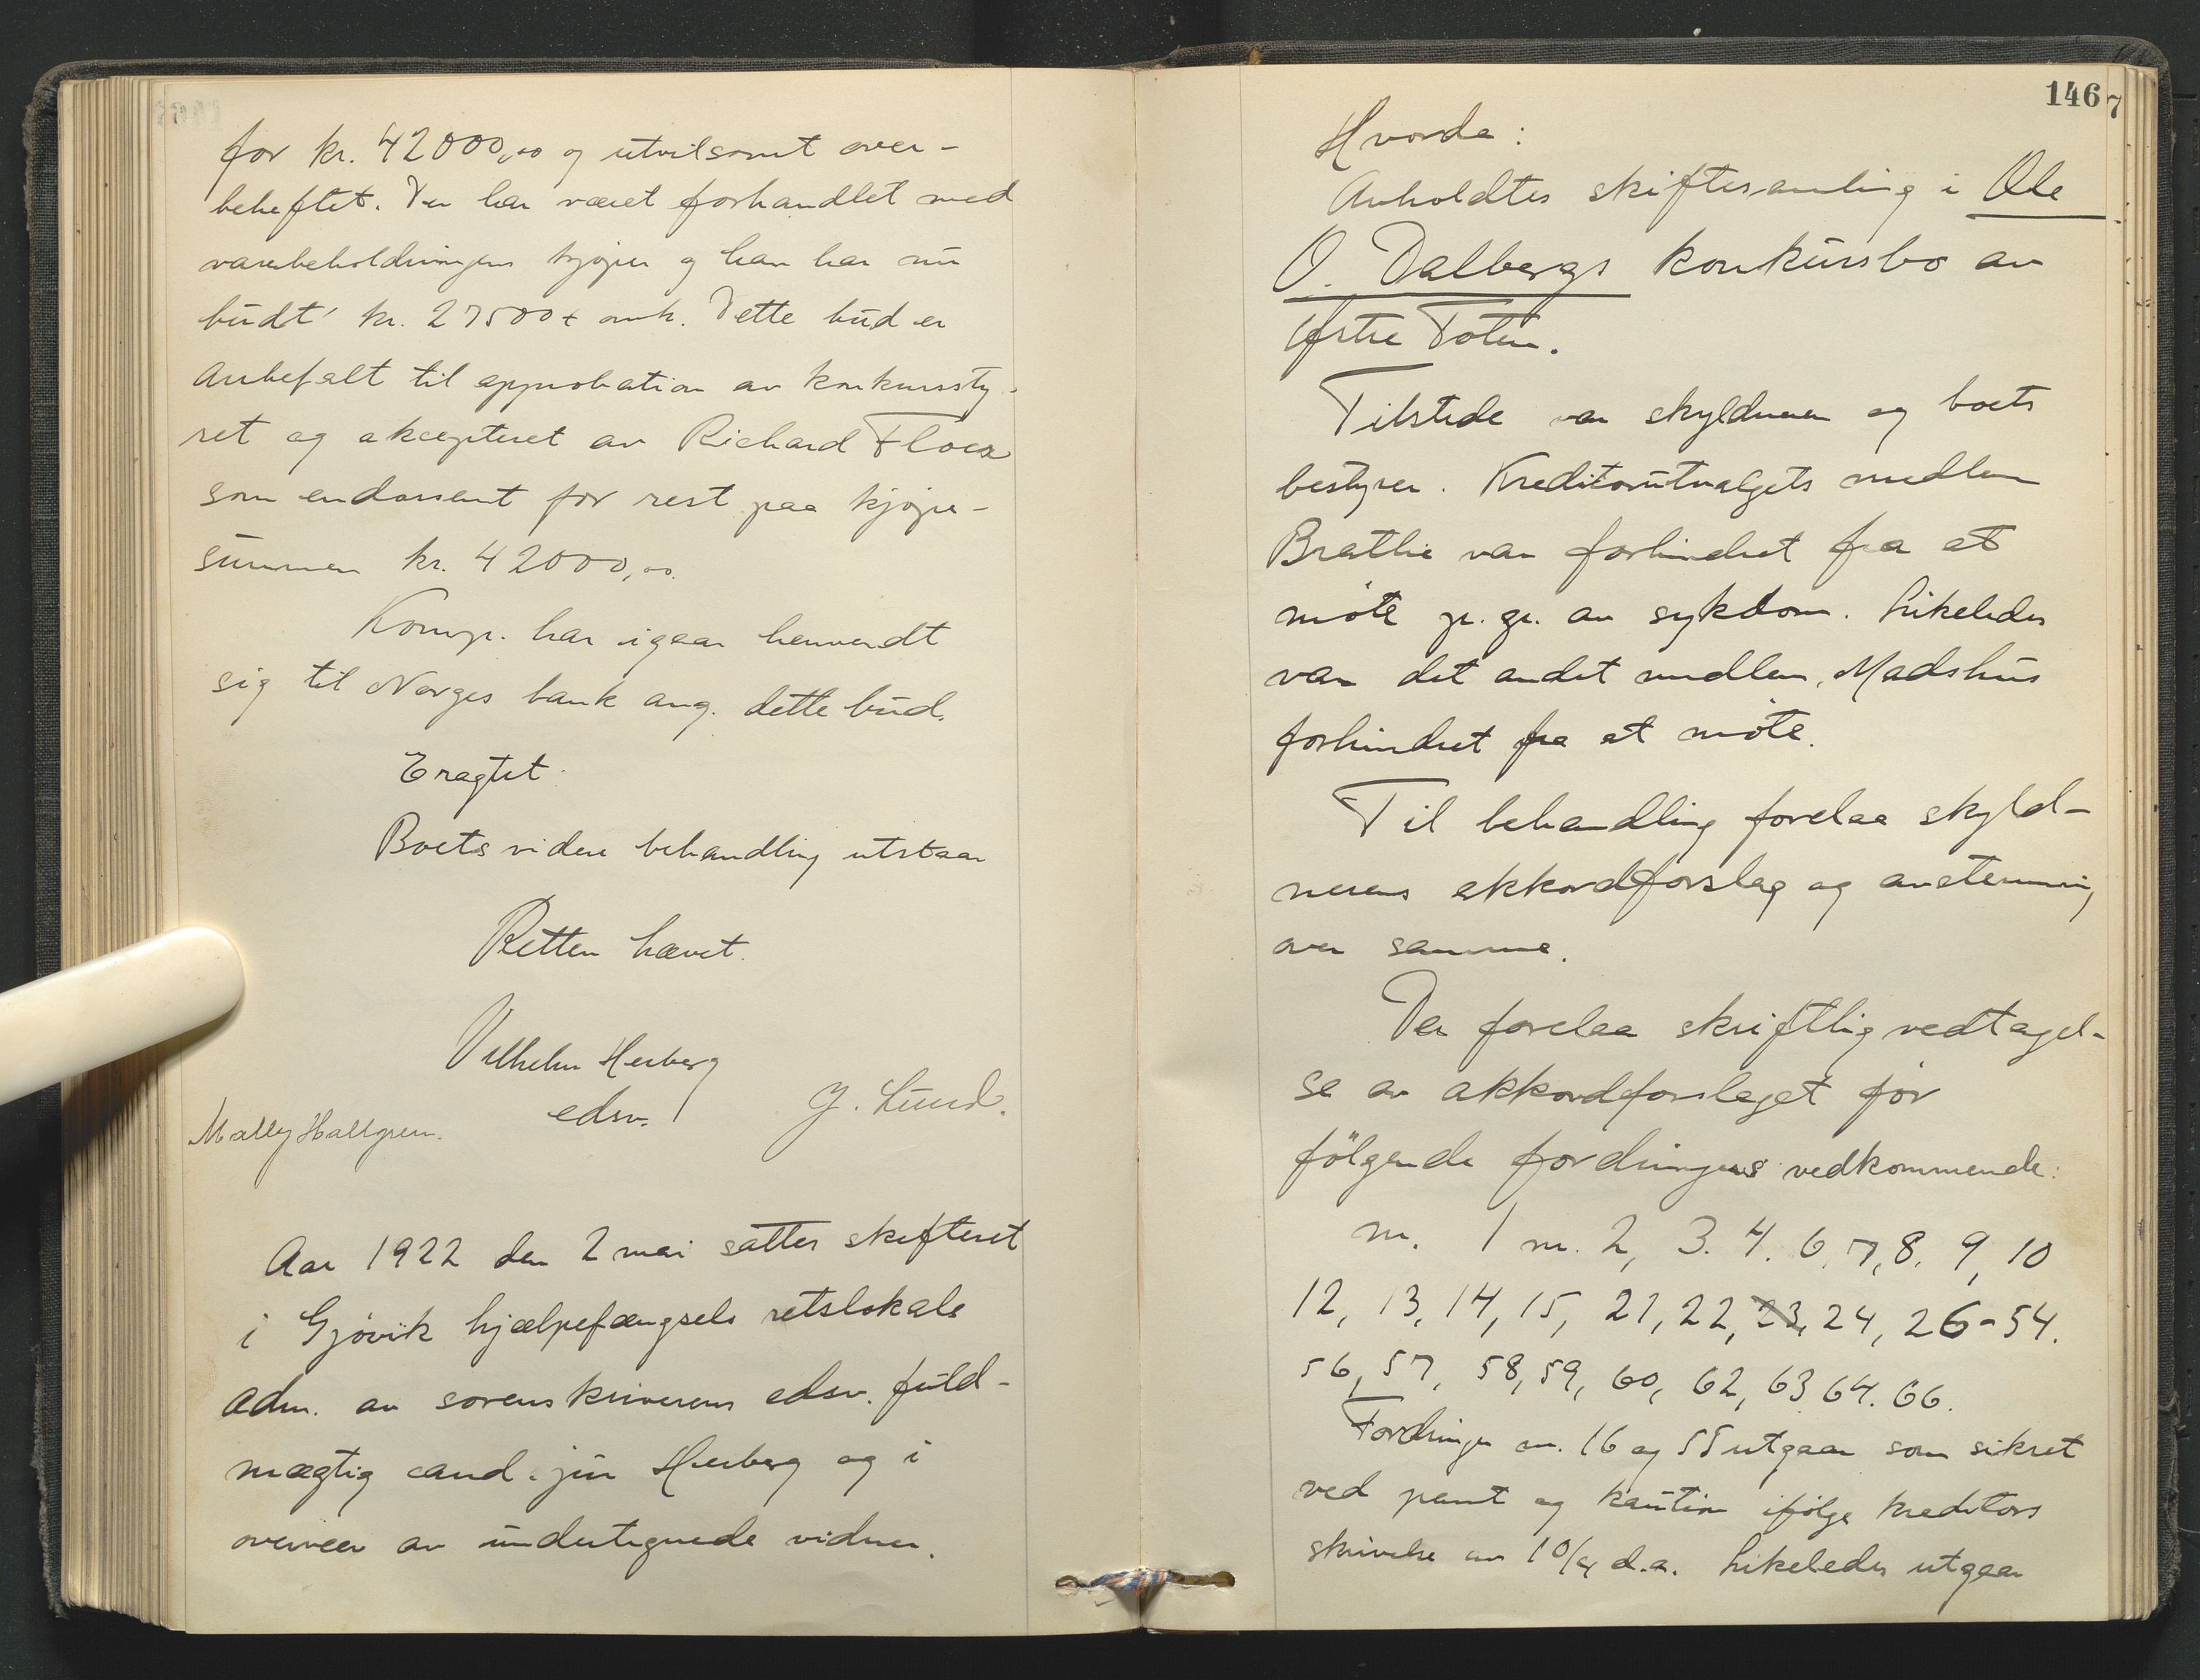 for kr. 42000,00 og utvilsomt over-
beheftet. Der har været forhandlet med
varebeholdningens kjøper og han har nu
budt kr. 27500 + omk. Dette bud er
anbefalt til approbation av konkurssty-
ret og akcepteret av Richard Floea
som endossent for rest paa kjøpe-
summen kr. 42000,00.
Komp. har igaar henvendt
sig til Norges bank ang. dette bud.
Eragtet:
Boets videre behandling utstaar
Retten hævet.
Vilhelm Herberg
edsv.
G. Lund.
Mally Hallgren.
Aar 1922 den 2 mai sattes skifteret
i Gjøvik hjælpefængsels retslokale
adm. av sorenskriverens edsv. fuld-
mægtig cand. jur Herberg og i
overvær av undertegnede vidner.
146 7
Hvorda:
Avholdtes skiftesamling i Ole
O. Dalbergs konkursbo av
Østre Toten.
Tilstede var skyldneren og boets
bestyrer. Kreditorutvalgets medlem
Brathie var forhindret fra at
möte p. gr. av sykdom. Likeledes
var det andet medlem, Madshus
forhindret fra at möte.
Til behandling forelaa skyld-
nerens akkordforslag og avstemning
over samme.
Der forelaa skriftlig vedtagel-
se av akkordforslaget for
fölgende fordringers vedkommende:
nr. 1 nr. 2, 3. 4. 6, 7, 8, 9, 10
12, 13, 14, 15, 21, 22, 23, 24, 26-54.
56, 57, 58, 59, 60, 62, 63 64. 66.
Fordringer nr. 16 og 55 utgaar som sikret
ved pant og kaution ifölge kreditors
skrivelse av 10/4 d.a. Likeledes utgaar